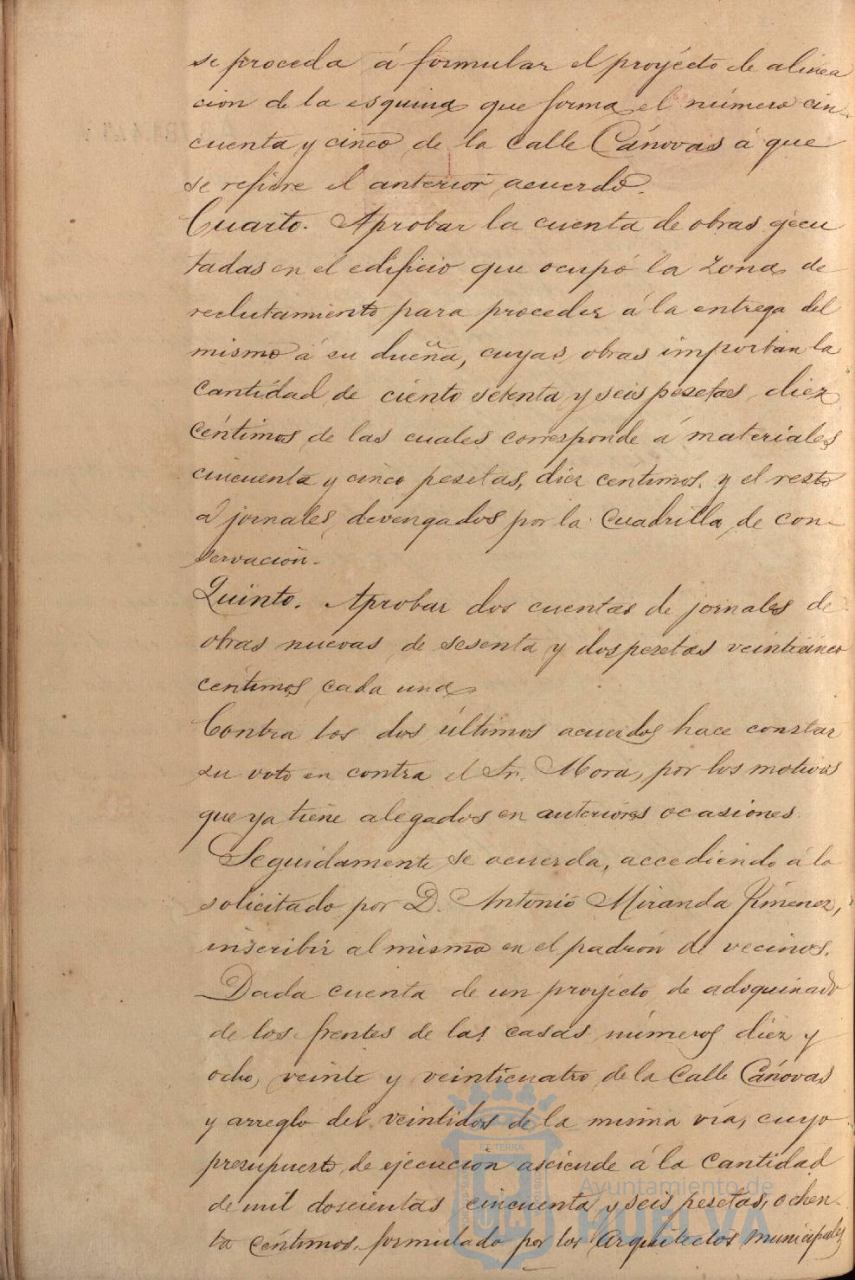 se proceda á formular el proyécto de alinea
cion de la esquina que forma el número cin-
cuenta y cinco de la calle Cánovas á que
se refiere el anterior acuerdo.
Cuarto. Aprobar la cuenta de obras ejecu
tadas en el edificio que ocupó la zona de
reclutamiento para proceder á la entrega del
mismo á su dueña, cuyas obras importan la
cantidad de ciento setenta y seis pesetas diez
céntimos de las cuales corresponde á materiales
cincuenta y cinco pesetas, diez centimos, y el resto
á jornales devengados por la Cuadrilla de con-
servación.
Quinto. Aprobar dos cuentas de jornales de
obras nuevas de sesenta y dos pesetas veinticinco
centimos cada una
Contra los dos últimos acuerdos hace constar
su voto en contra el Sr. Mora, por los motivos
que ya tiene alegados en anteriores ocasiones
Seguidamente se acuerda, accediendo á lo
solicitado por D. Antonio Miranda Jimenez,
inscribir al mismo en el padrón de vecinos.
Dada cuenta de un proyécto de adoquinado
de los frentes de las casas números diez y
ocho, veinte y veinticuatro de la Calle Cánovas
y arreglo del veintidos de la misma vía, cuyo
presupuesto de ejecución asciende á la cantidad
de mil doscientas cincuenta y seis pesetas, ochen-
ta céntimos formulado por los Arquitectos municipales
Ayuntamiento de
HUELVA